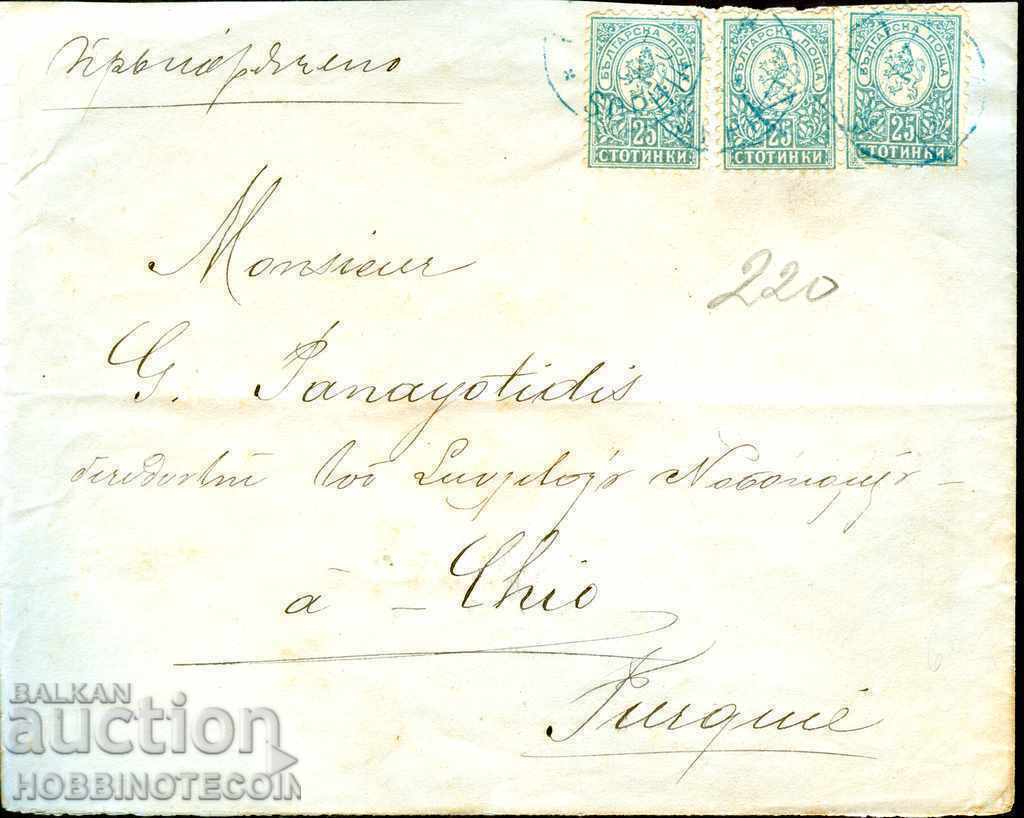 Прѣпорѫчено
БЪЛГАРСКА ПОЩА
25
СТОТИНКИ
БЪЛГАРСКА ПОЩА
25
СТОТИНКИ
БЪЛГАРСКА ПОЩА
25
СТОТИНКИ
220
Monsieur
G. Panayotidis
τοῦ
à - Chio
Turquie
BALKAN
auction
HOBBINOTECOIN